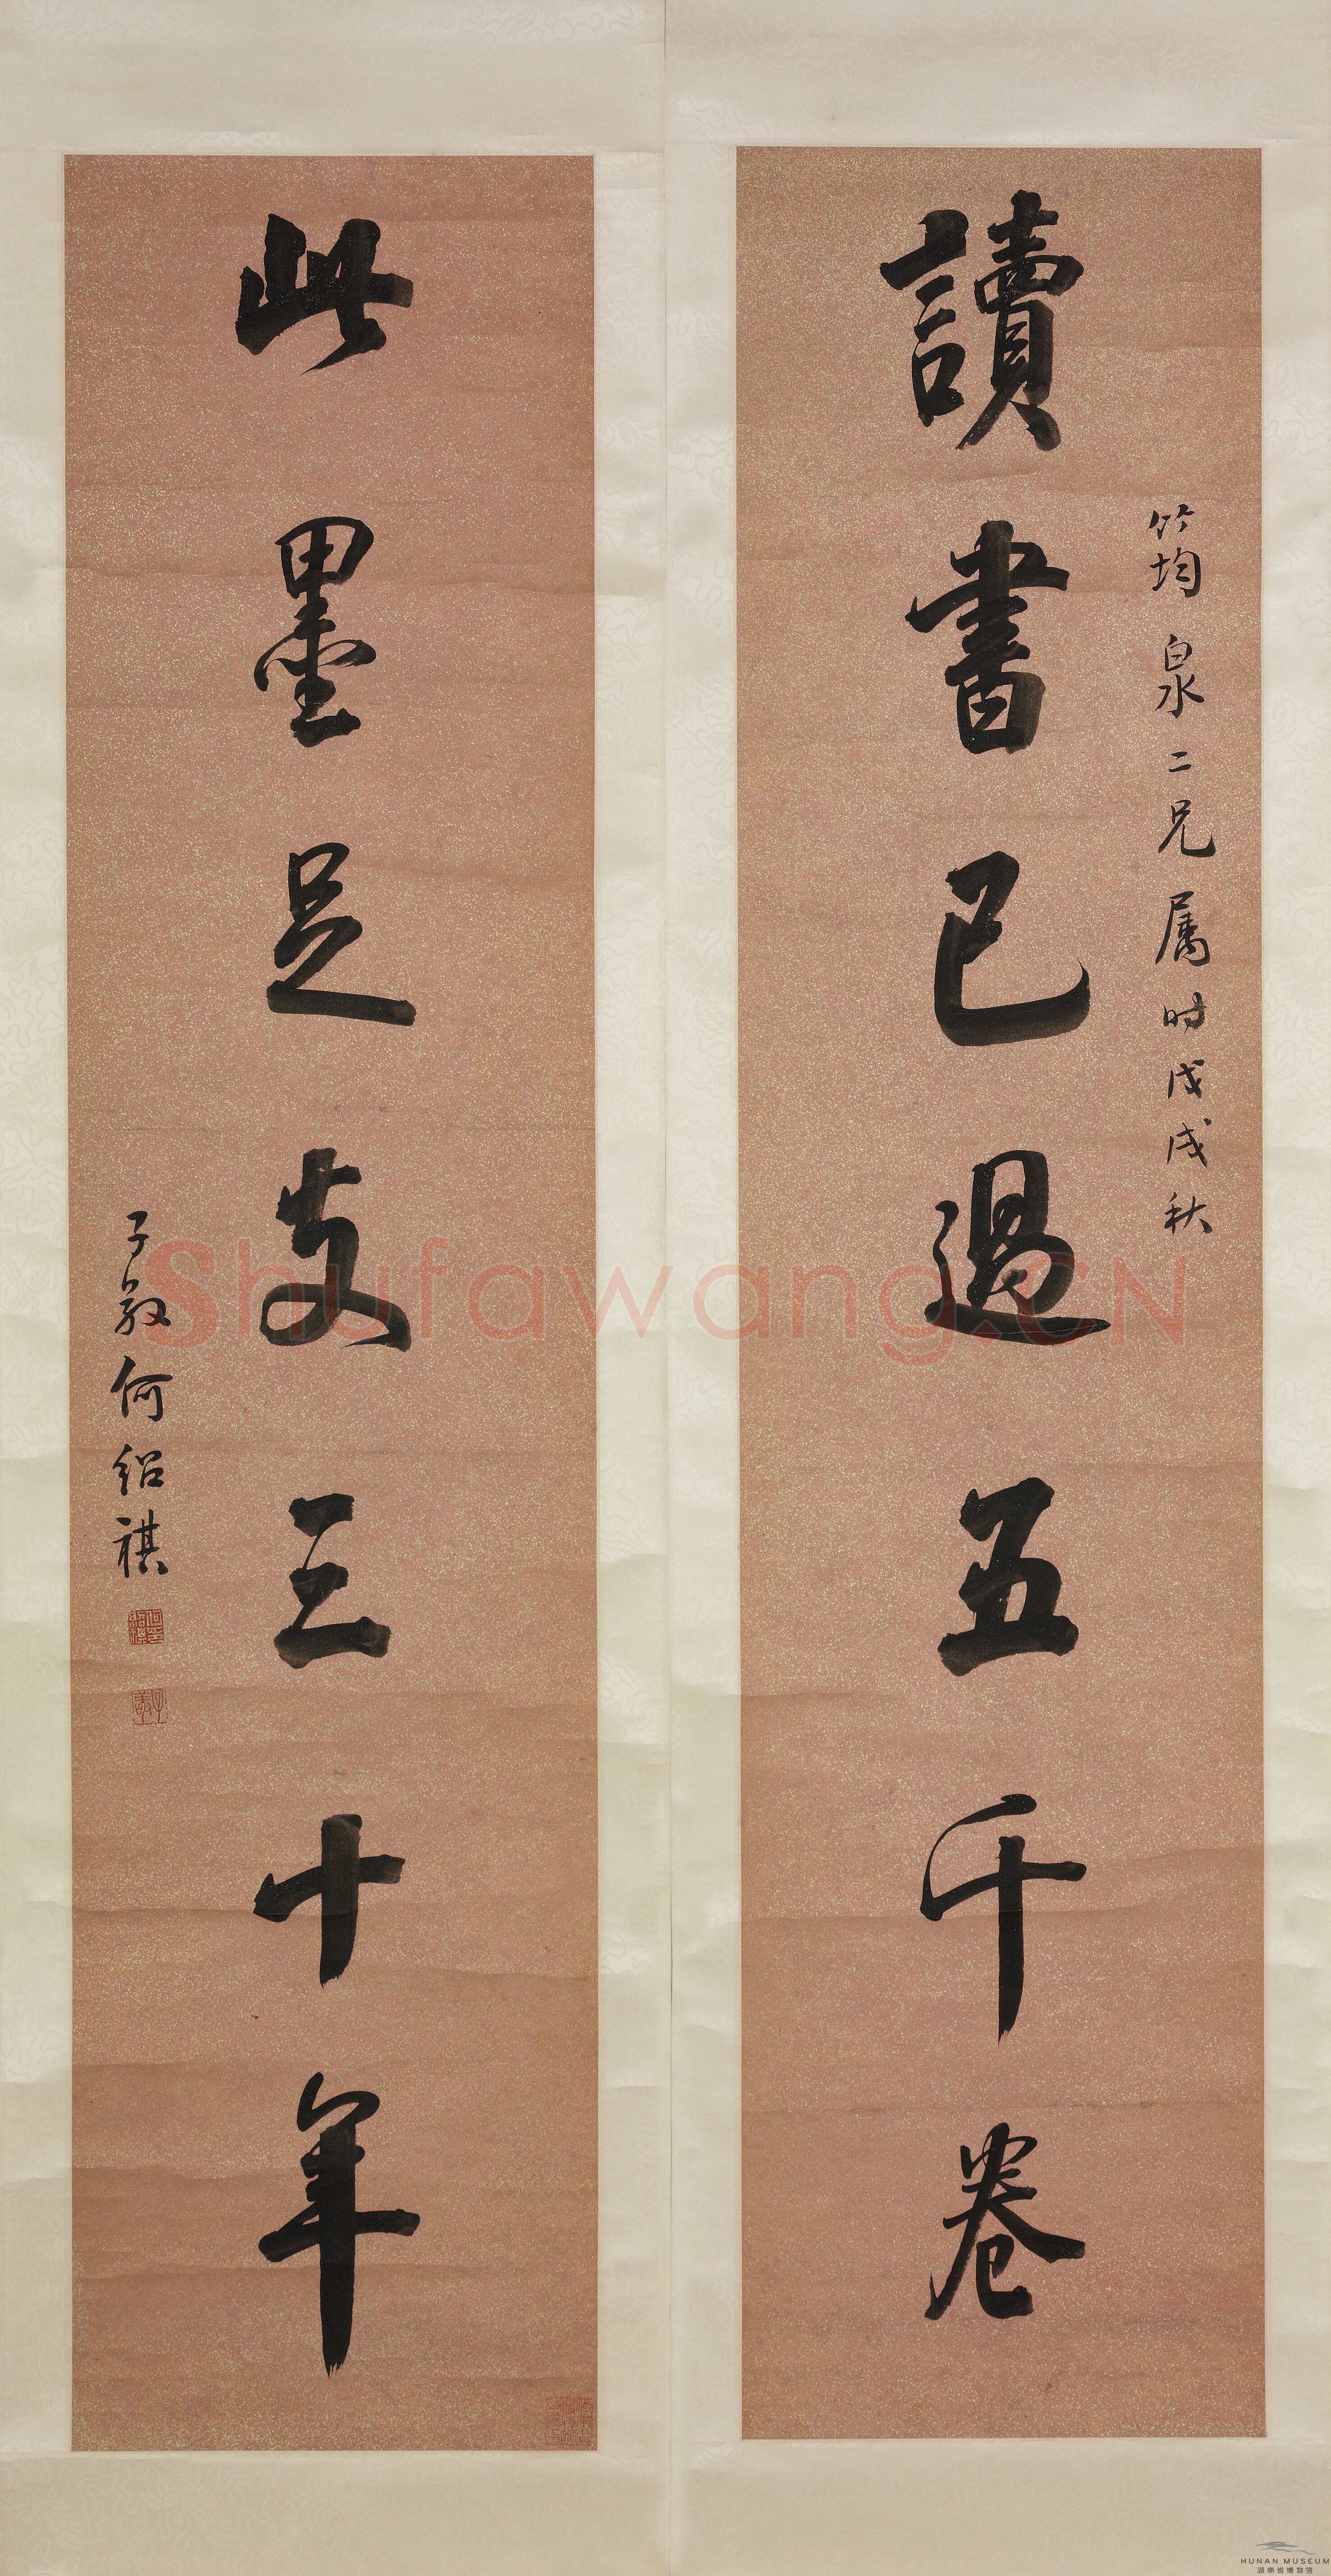 讀書已過五千卷
筠泉二兄属时戊戌秋
此墨足支三十年
子敬何紹祺
Shufawang.CN
HUNAN MUSEUM
湖南省博物馆